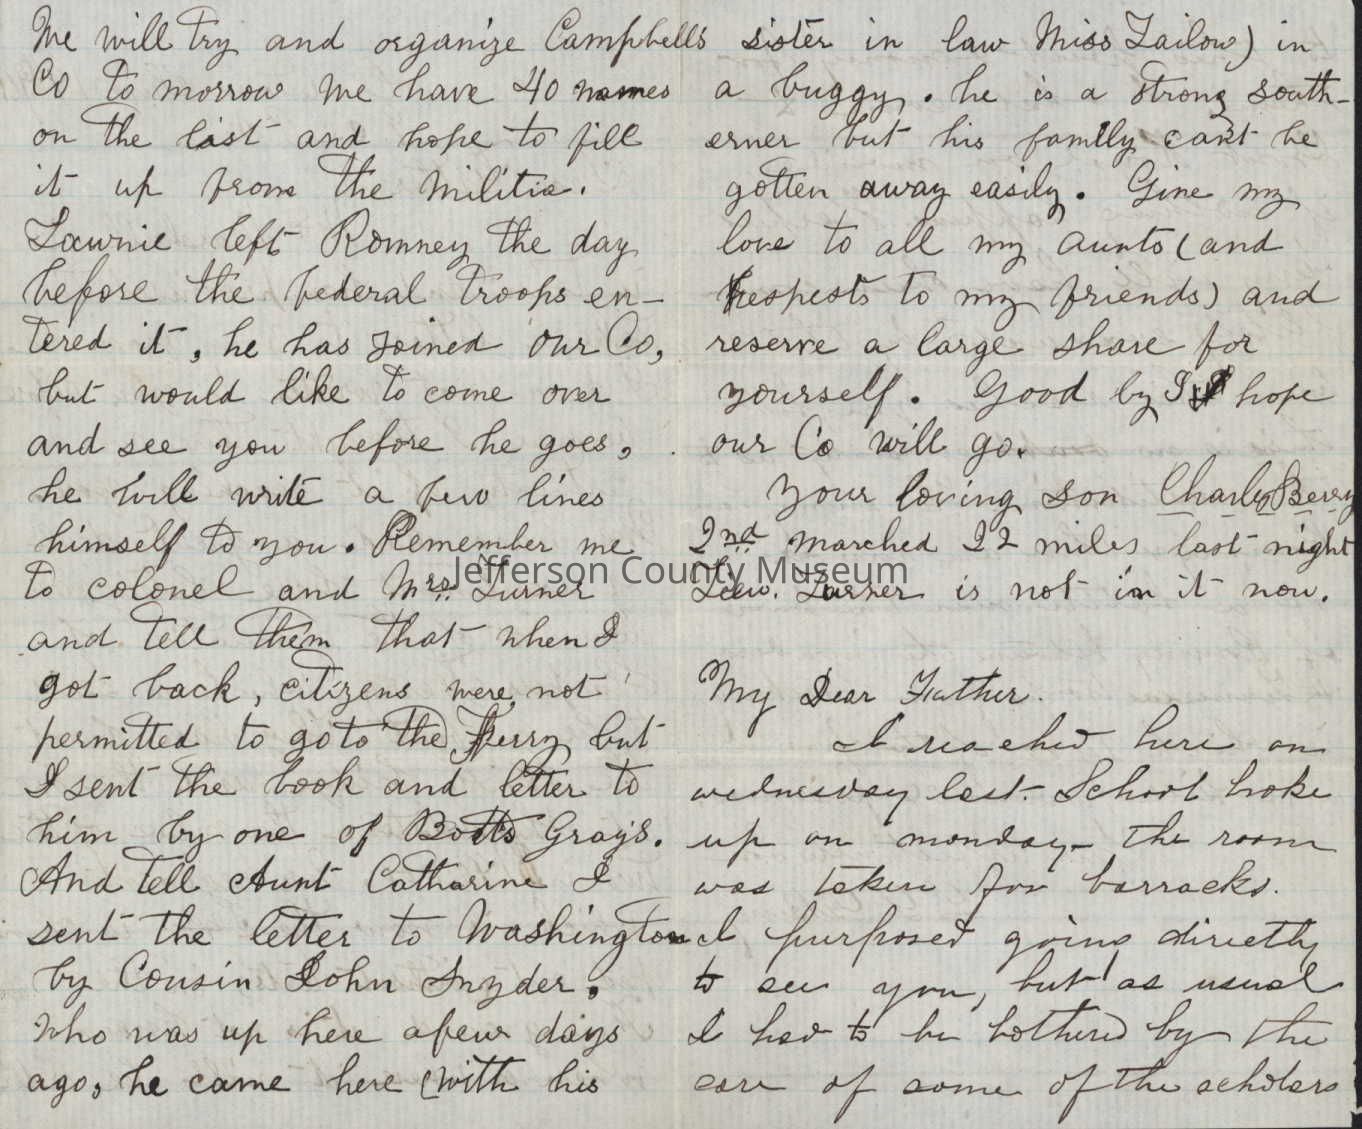 We will try and organize Campbells
Co to morrow We have 40 names
on the list and hope to fill
it up from the Militia.
Lawnie left Romney the day
before the Federal Troops en-
tered it, he has joined our Co,
but would like to come over
and see you before he goes,
he will write a few lines
himself to you. Remember me
to colonel and Mrs. Turner
and tell them that when I
got back, citizens were not
permitted to go to the Ferry but
I sent the book and letter to
him by one of Botts Grays.
And tell Aunt Catharine I
sent the letter to Washington
by Cousin John Snyder,
Who was up here a few days
ago, he came here (with his
sister in law Miss) in
a buggy. he is a strong south-
erner but his family can't be
gotten away easily. Give my
love to all my Aunts (and
respects to my friends) and
reserve a large share for
yourself. Good by I hope
our Co will go.
Your loving son Charley Berry
2nd marched 22 miles last night
Lew. Turner is not in it now.
My Dear Father.
I reached here on
wednesday last. School broke
up on monday - the room
was taken for barracks.
I purposed going directly
to see you, but as usual
I had to be bothered by the
care of some of the scholars
Jefferson County Museum